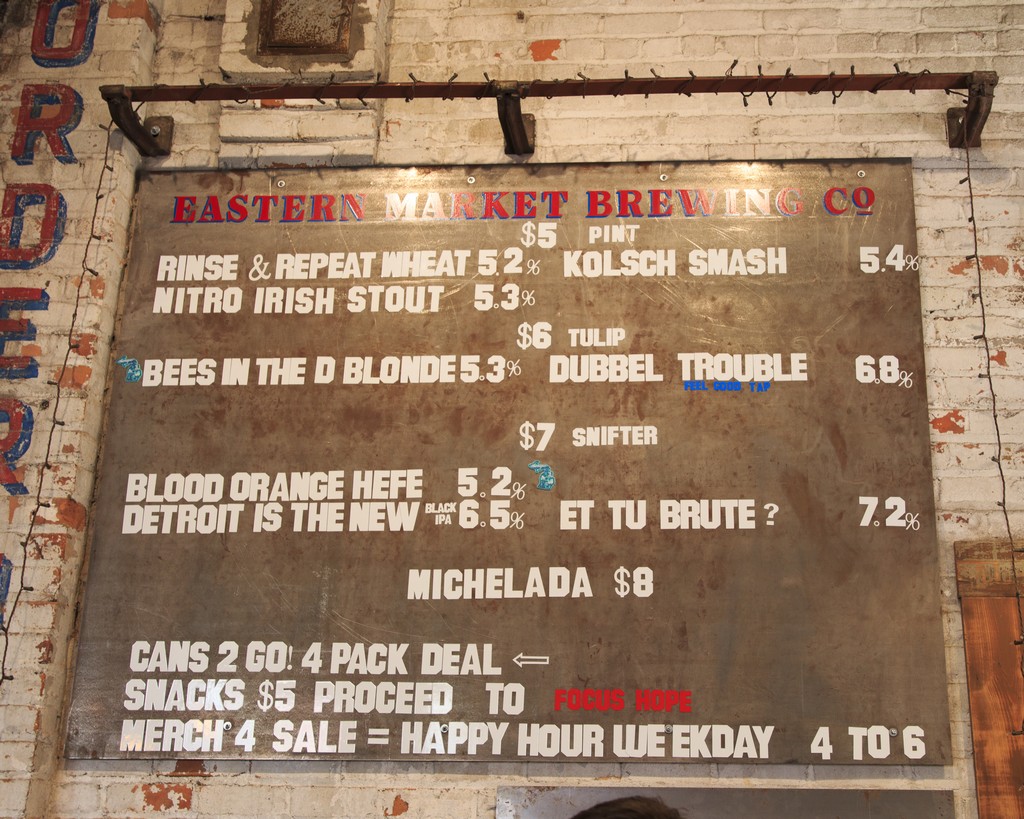 ORDER
EASTERN MARKET BREWING CO
$5 PINT
RINSE & REPEAT WHEAT 5.2% KOLSCH SMASH 5.4%
NITRO IRISH STOUT 5.3%
$6 TULIP
BEES IN THE D BLONDE 5.3% DUBBEL TROUBLE 6.8%
FEEL GOOD TAP
$7 SNIFTER
BLOOD ORANGE HEFE 5.2%
DETROIT IS THE NEW BLACK IPA 6.5% ET TU BRUTE? 7.2%
MICHELADA $8
CANS 2 GO! 4 PACK DEAL ⇦
SNACKS $5 PROCEED TO FOCUS HOPE
MERCH 4 SALE = HAPPY HOUR WEEKDAY 4 TO 6